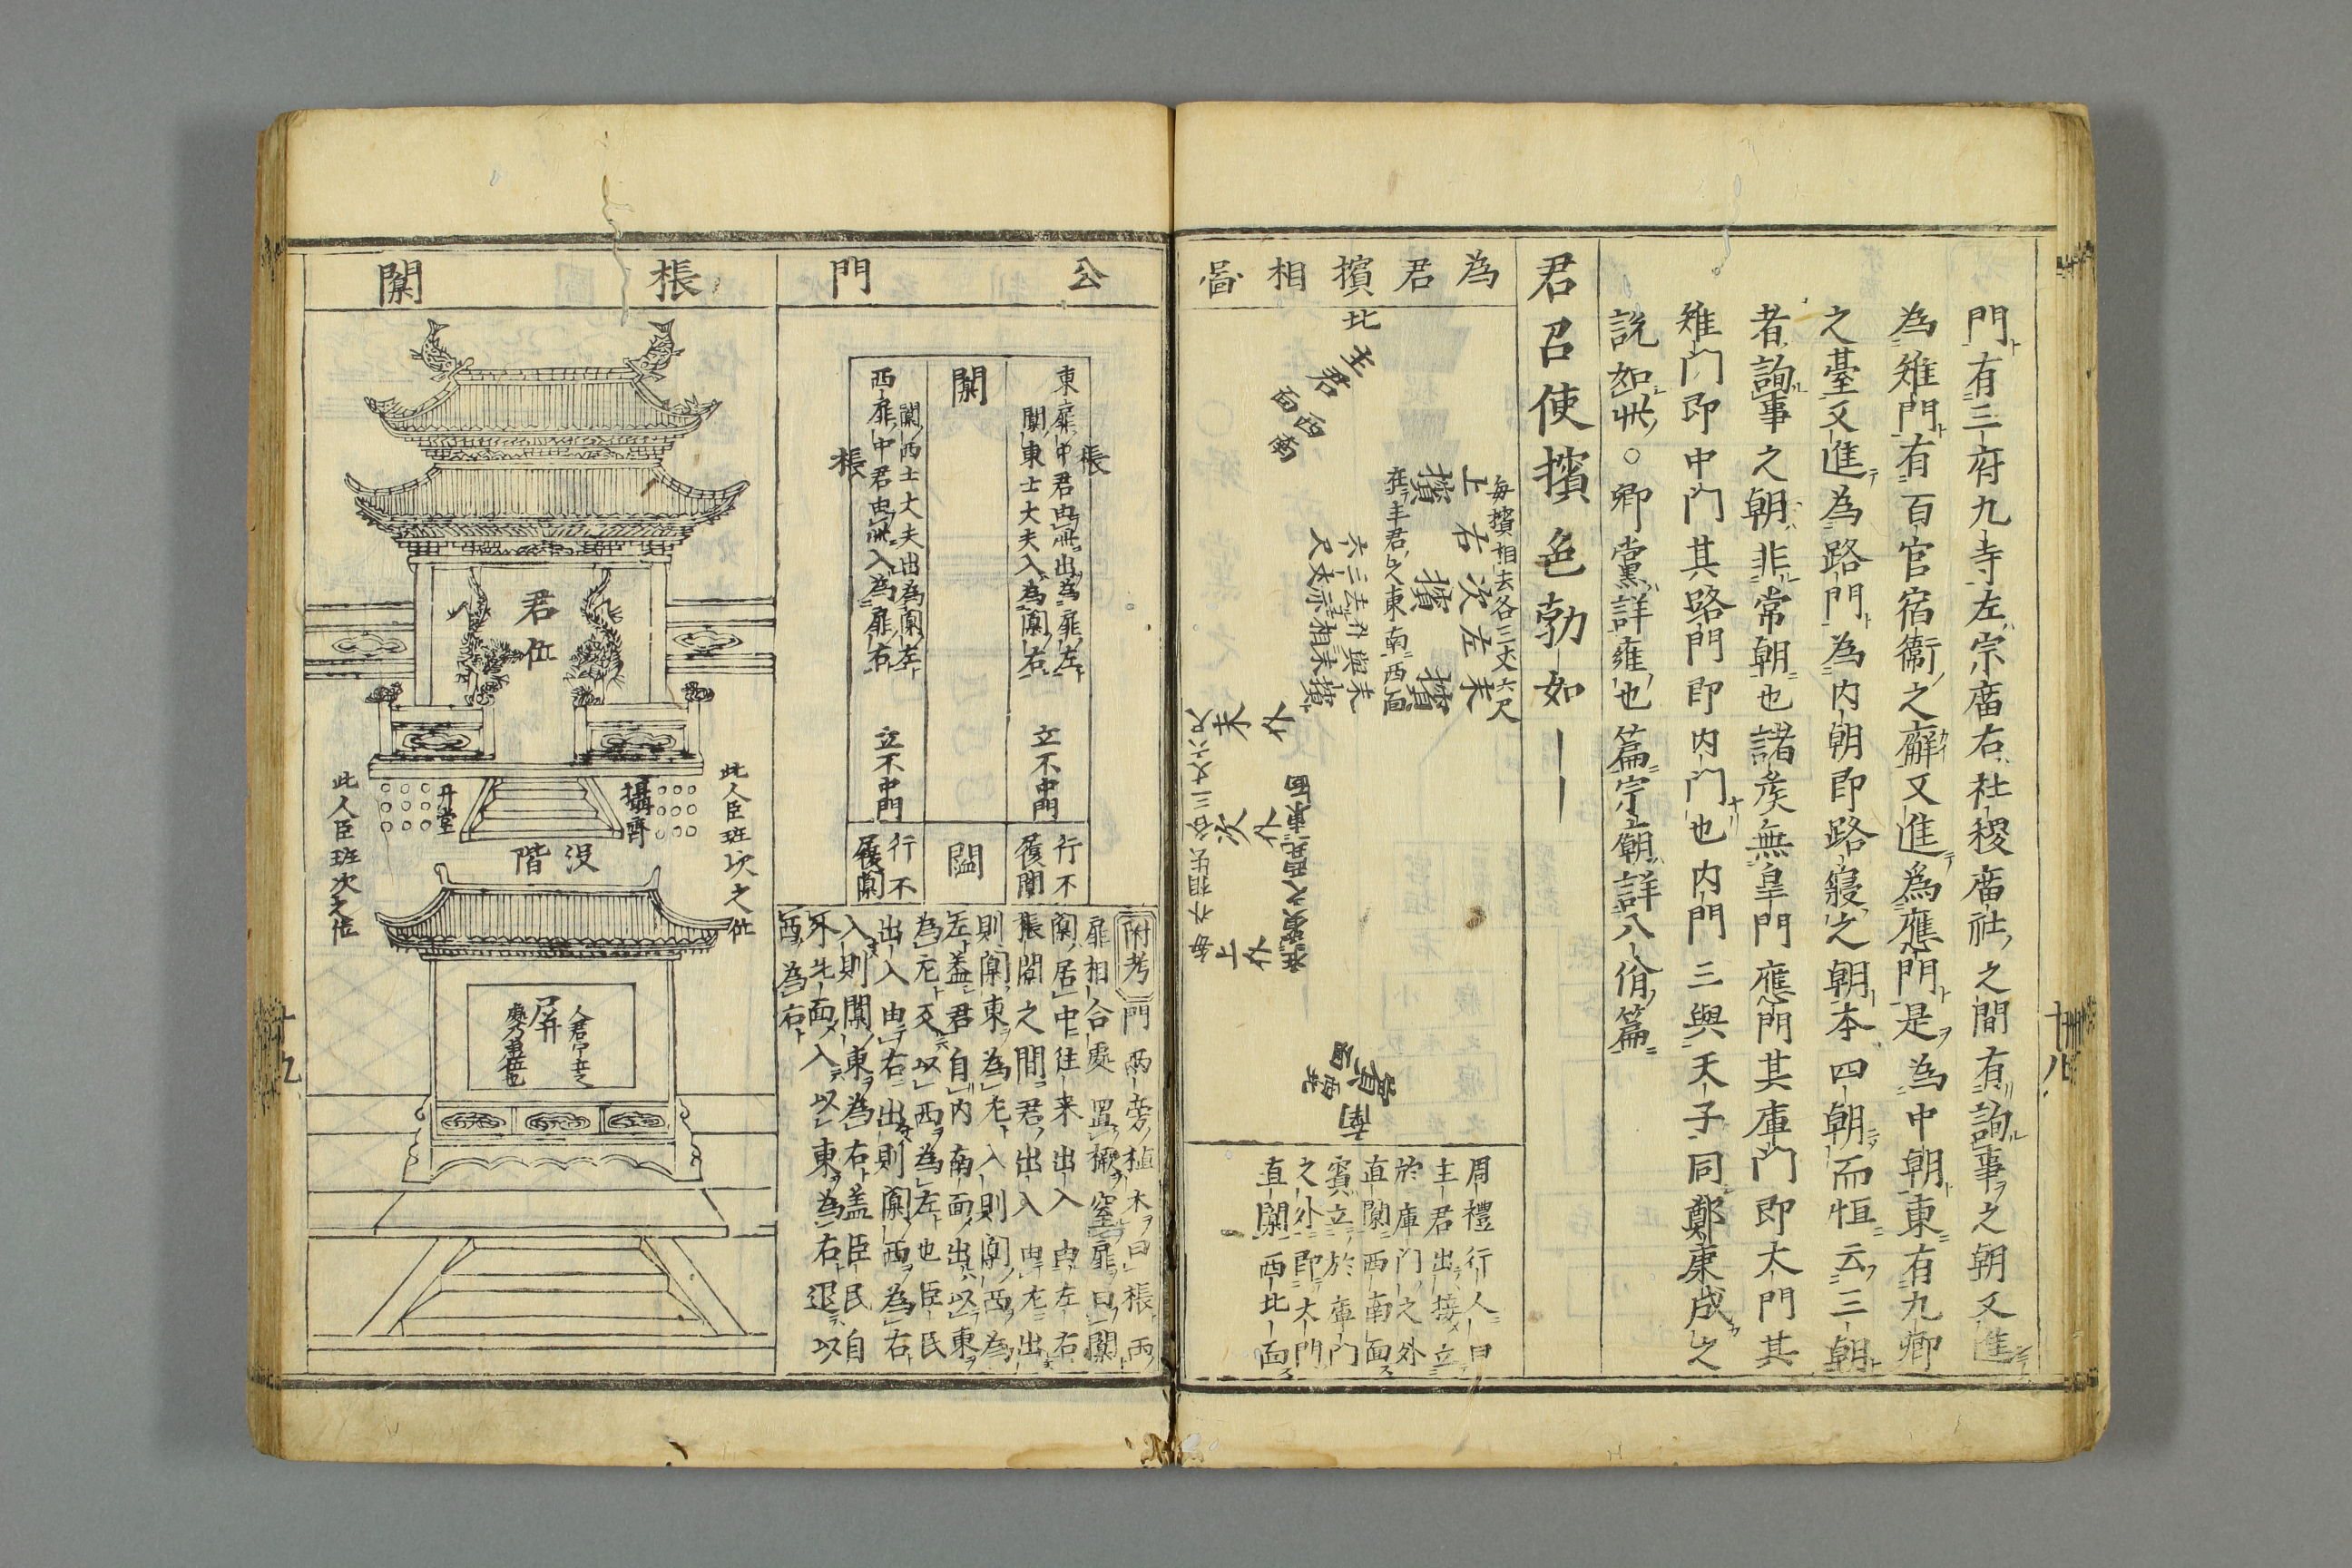 門有三府九寺左宗廟右社稷廟社之間有詢事之朝又進
為雉門有百官宿衞之廨又進爲應門是為中朝東有九卿
之臺又進為路門為内朝即路寢之朝本四朝而恒云三朝
者詢事之朝非常朝也諸矦無皐門應門其庫門即大門其
雉門即中門其路門即内門也内門三與天子同鄭康成之
說如此○卿黨詳雍也篇宗廟詳八佾篇
君召使擯色勃如
為君擯相啚
北
主君
西
南
面
每擯相去各三丈六尺
上擯
右
次擯
左
末擯
在主君之東南西面
末擯與末介去三丈六尺
末介
次介
上介
每介相去各三丈六尺
賓
南
周禮行人曰
主君出接立
於庫門之外
直闑西南面
賓立於庫門
之外即大門
直闑西北面
十八
公門
棖闑
東扉中君由此出為扉左
闑東士大夫入為闑右
棖
立不中門
行不
履閾
闑
閾
闑西士大夫出為闑左
西扉中君由此入為扉右
棖
立不中門
行不
履閾
附考門両旁植木曰棖両
扉相合處置橛窒扉曰闑
闑居中往来出入由左右
棖闑之間君出入由左出
則闑東為左入則闑西為
左盖君自内南面出以東
為左反以西為左也臣民
出入由右出則闑西為右
入則闑東為右盖臣民自
外北面入以東為右退以
西為右
君位
此人臣班次之位
攝齊
升堂
此人臣班次之位
没階
屏
十九